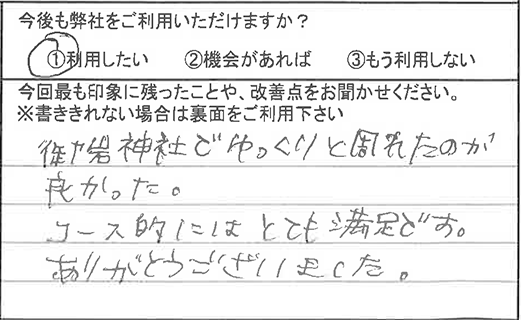 今後も弊社をご利用いただけますか？
①利用したい　②機会があれば　③もう利用しない
今回最も印象に残ったことや、改善点をお聞かせください。
※書ききれない場合は裏面をご利用下さい
御岩神社でゆっくりと周れたのが
良かった。
コース的にはとても満足です。
ありがとうございました。